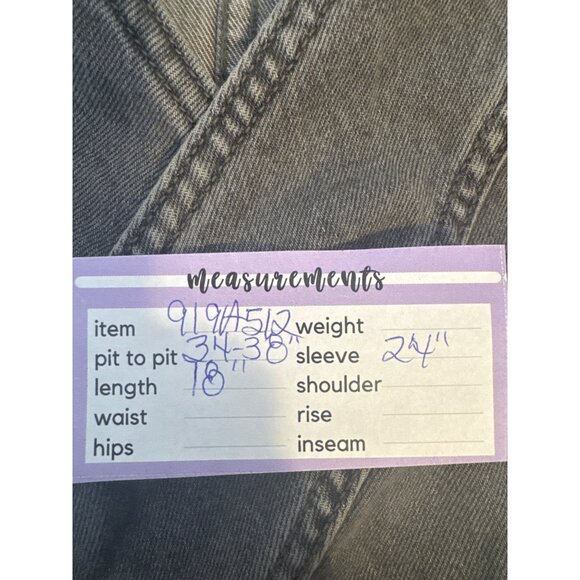 measurements
item 919A512 weight
pit to pit 34-38" sleeve 24"
length 18" shoulder
waist rise
hips inseam